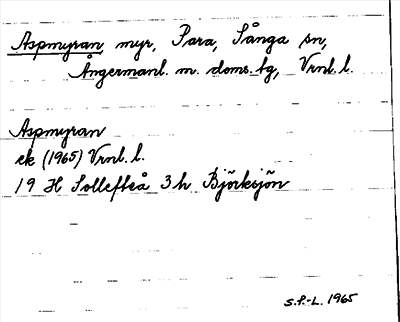 Aspmyran, myr, Para, Sånga sn,
Ångermanl. m. doms. tg, Vrnl. l.
Aspmyran
ek (1965) Vrnl. l.
19 H Sollefteå 3 h Björksjön
S.P.-L. 1965